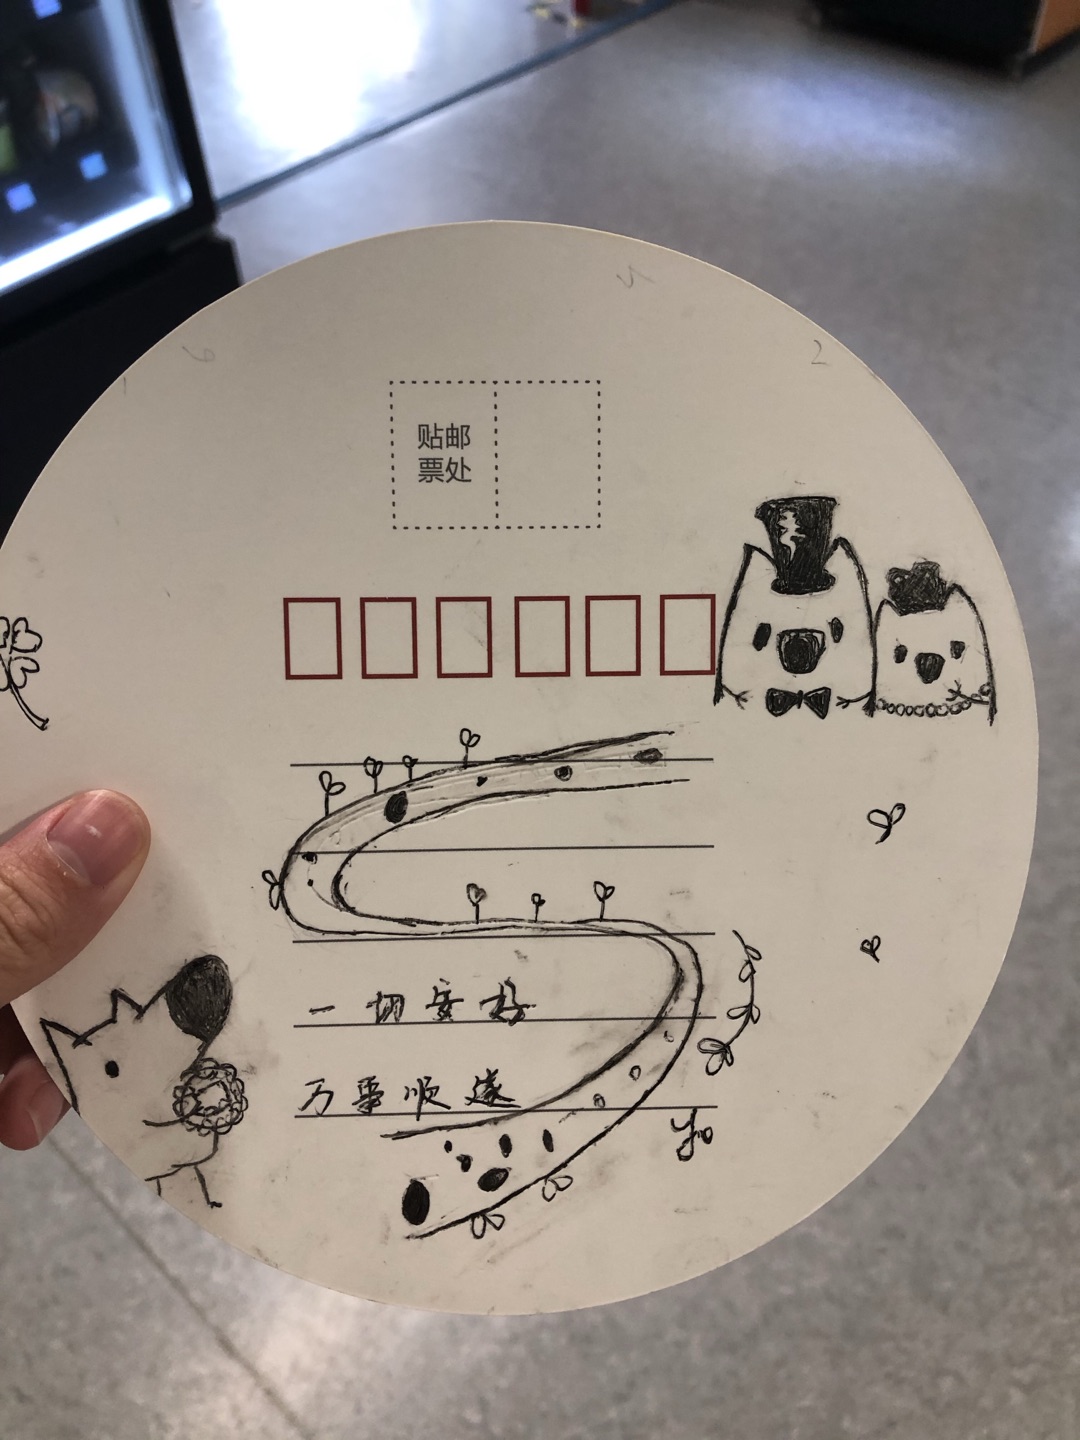 贴邮
票处
一切安好
万事顺遂